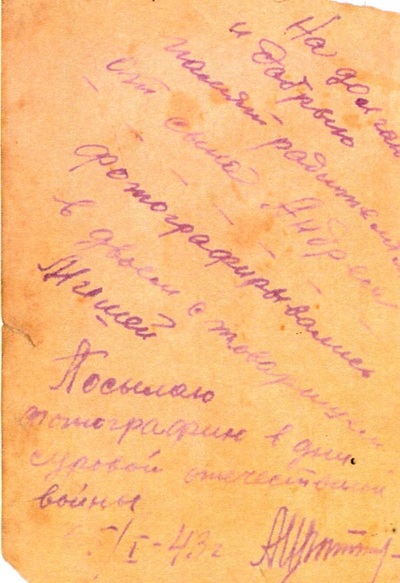 На долгую
и добрую
памят родителям
от сына Андрея
фотографировались
в двоем с товарищем
Мишей
Посылаю
фотографию в дни
суровой отечественной
войны
5/I-43г